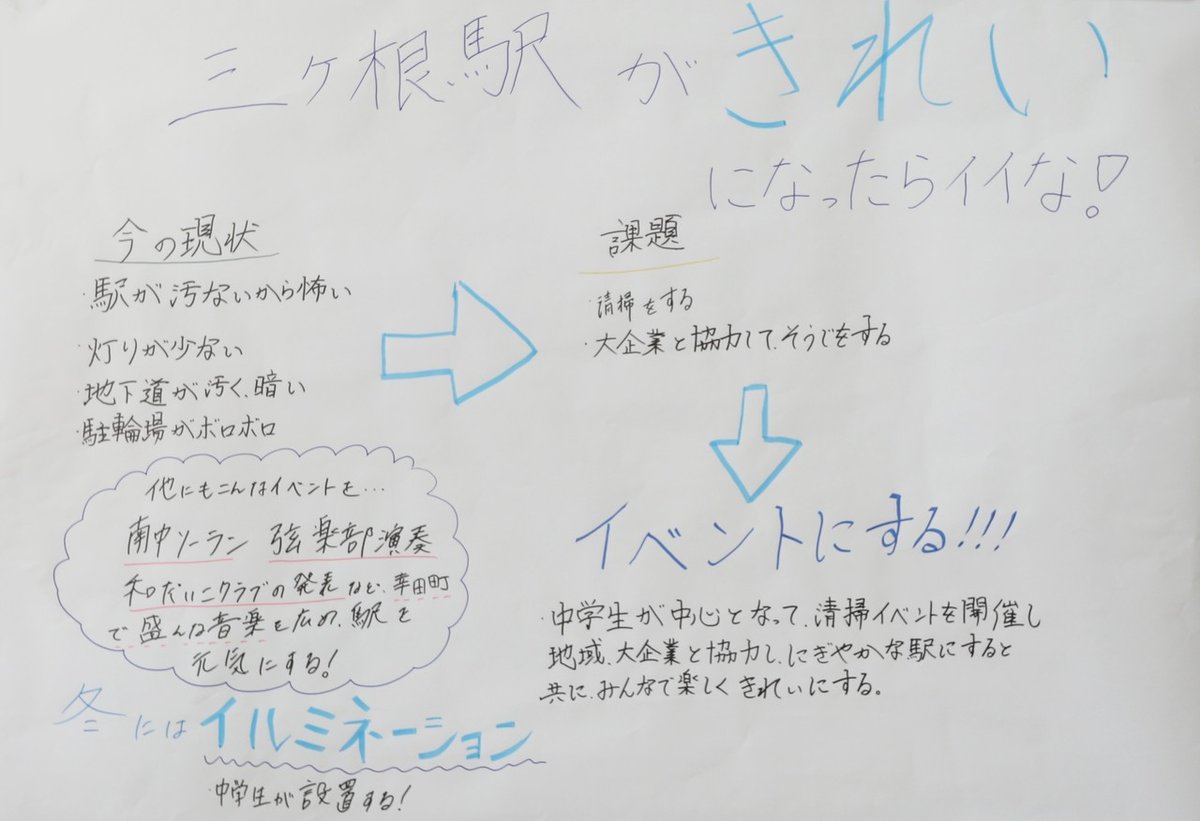 三ヶ根駅がきれい
になったらイイな!
今の現状
・駅が汚ないから怖い
・灯りが少ない
・地下道が汚く、暗い
・駐輪場がボロボロ
課題
・清掃をする
・大企業と協力して、そうじをする
イベントにする!!!
・中学生が中心となって、清掃イベントを開催し
地域、大企業と協力し、にぎやかな駅にすると
共に、みんなで楽しくきれいにする。
他にもこんなイベントを…
南中ソーラン 弦楽部演奏
和だいこクラブの発表など、幸田町
で盛んな音楽を広め、駅を
元気にする!
冬にはイルミネーション
・中学生が設置する!